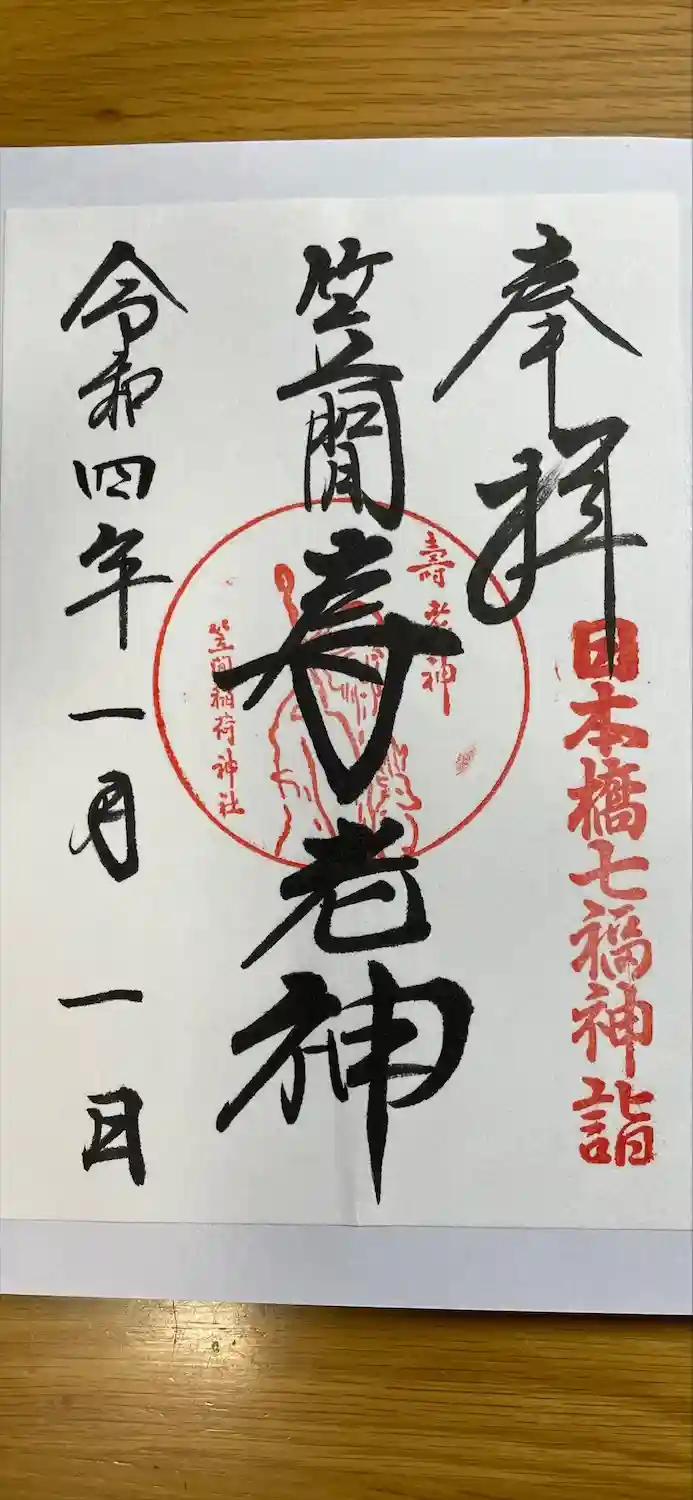 奉拝
日本橋七福神詣
笠間寿老神
壽老神
笠間稲荷神社
令和四年一月一日